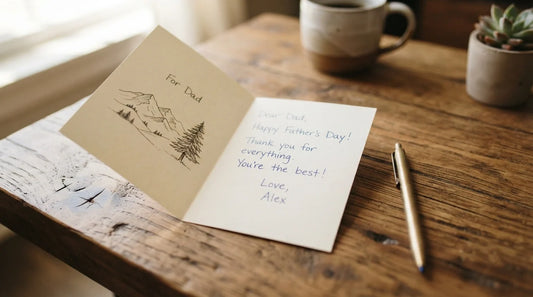 For Dad
Dear Dad,
Happy Father's Day!
Thank you for
everything.
You're the best!
Love,
Alex